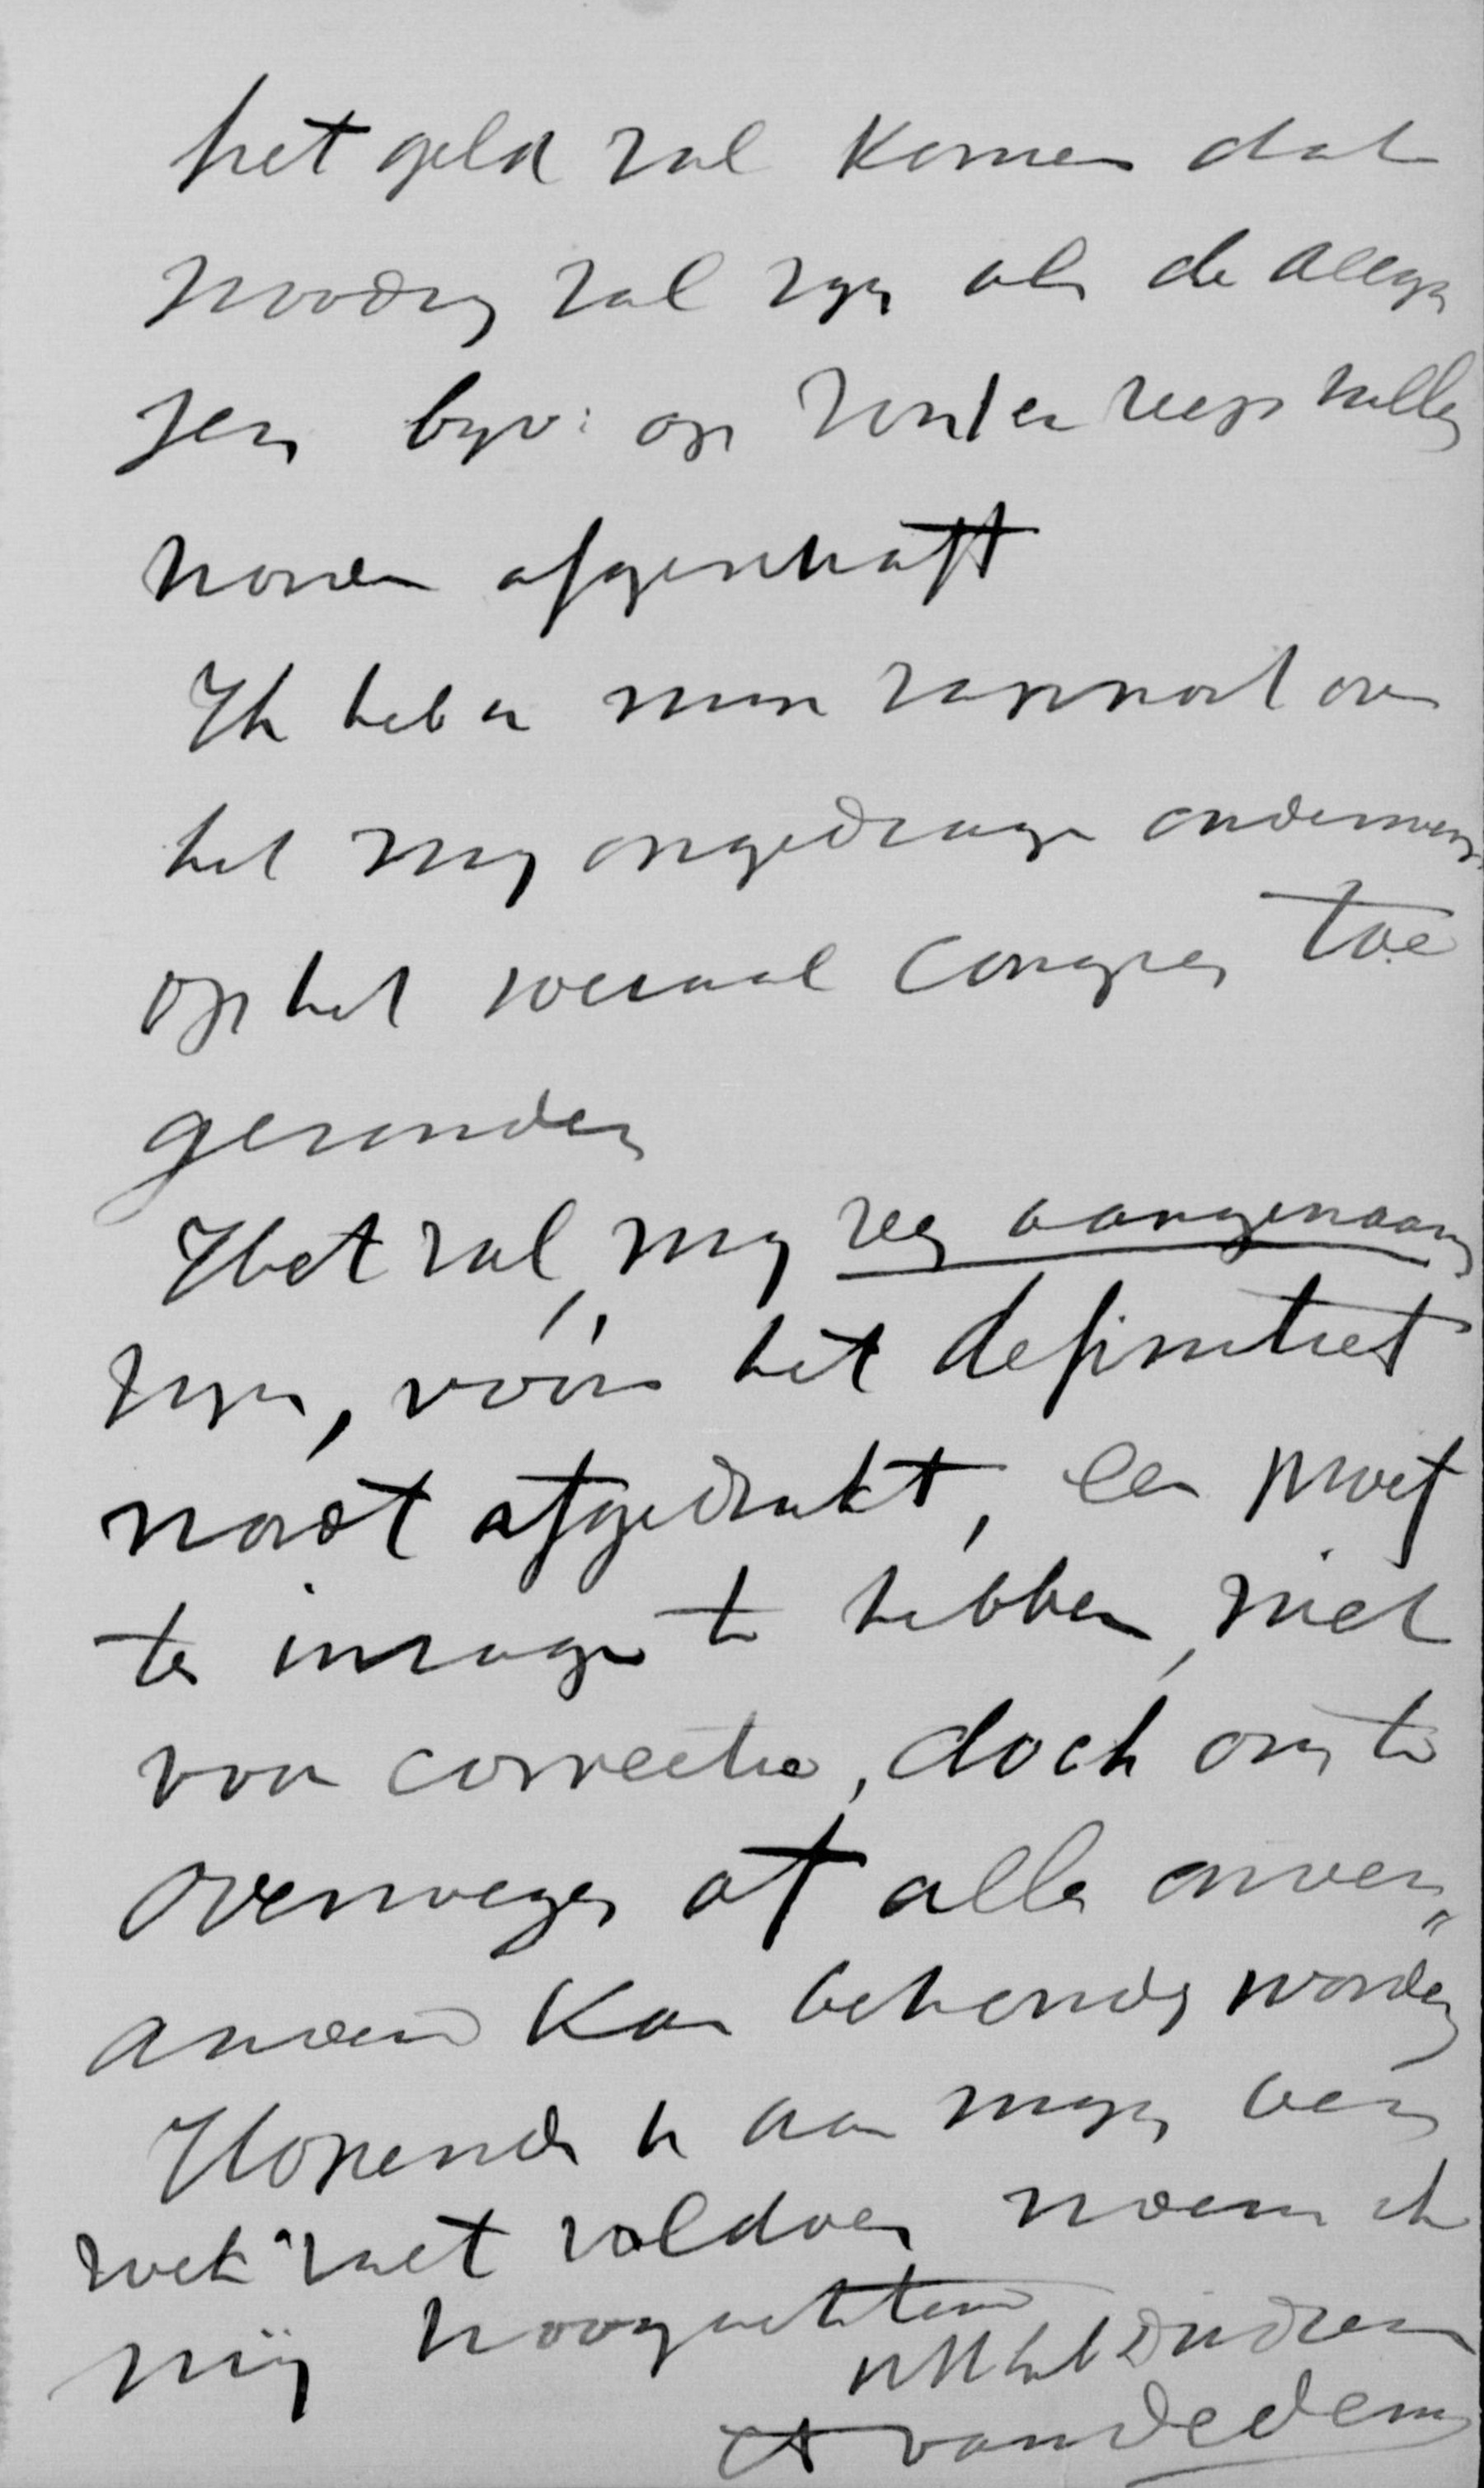 het geld zal komen dat
noodig zal zyn als de accyn
sen byv: op zout en zeep zullen
worden afgeschaft
Ik heb u myn rapport over
het my opgedragen onderwerp
op het sociaal Congres toe
gezonden
Het zal my zeer aangenaam
zyn, vóór het definitief
wordt afgedrukt, een proef
te inzage te hebben, niet
voor correctie, doch om te
overwegen of alle
kan worden
Hopende u aan myn ver
zoek zult voldoen noem ik
mij hoogachtend
UWEd dw dien
A van Dedem